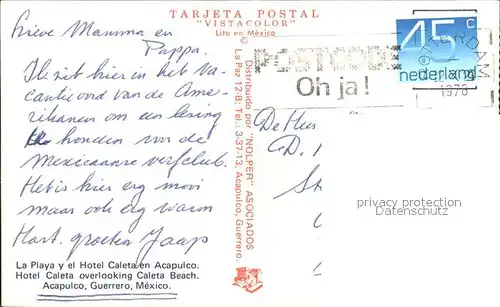 TARJETA POSTAL
"VISTACOLOR"
Lito en México
Lieve Mamma en
Pappa.
Ik zit hier in het va-
cantieoord van de Ame-
rikanen om een lezing
te houden voor de
Mexicaanse verfclub.
Het is hier erg mooi
maar ook erg warm
Hart. groeten Jaap
La Playa y el Hotel Caleta en Acapulco.
Hotel Caleta overlooking Caleta Beach.
Acapulco, Guerrero, México.
Distribuido por "NOLPER" ASOCIADOS
La Paz 12-B: Tel: 3-37-13. Acapulco, Guerrero.
POSTCODE
Oh ja!
1978
45c
nederland
De Heer
D.
protection privacy
Datenschutz